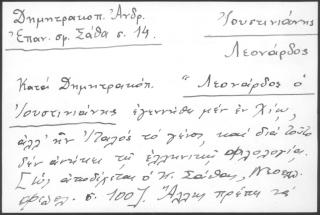 Δημητρακοπ. Ἀνδρ.
Ἐπαν. σφ. Σάθα σ. 14.
Ἰουστινιάνης
Λεονάρδος
Κατὰ Δημητρακόπ. "Λεονάρδος ὁ
Ἰουστινιάνης ἐγεννήθη μὲν ἐν Χίῳ,
ἀλλ' ἦν Ἰταλὸς τὸ γένος, καὶ διὰ τοῦτο
δὲν ἀνήκει τῇ ἑλληνικῇ φιλολογίᾳ,
[ὡς ἀποδέχεται ὁ Κ. Σάθας, Νεοελ.
φιλολ. σ. 100]. Ἄλλως πρέπει νὰ